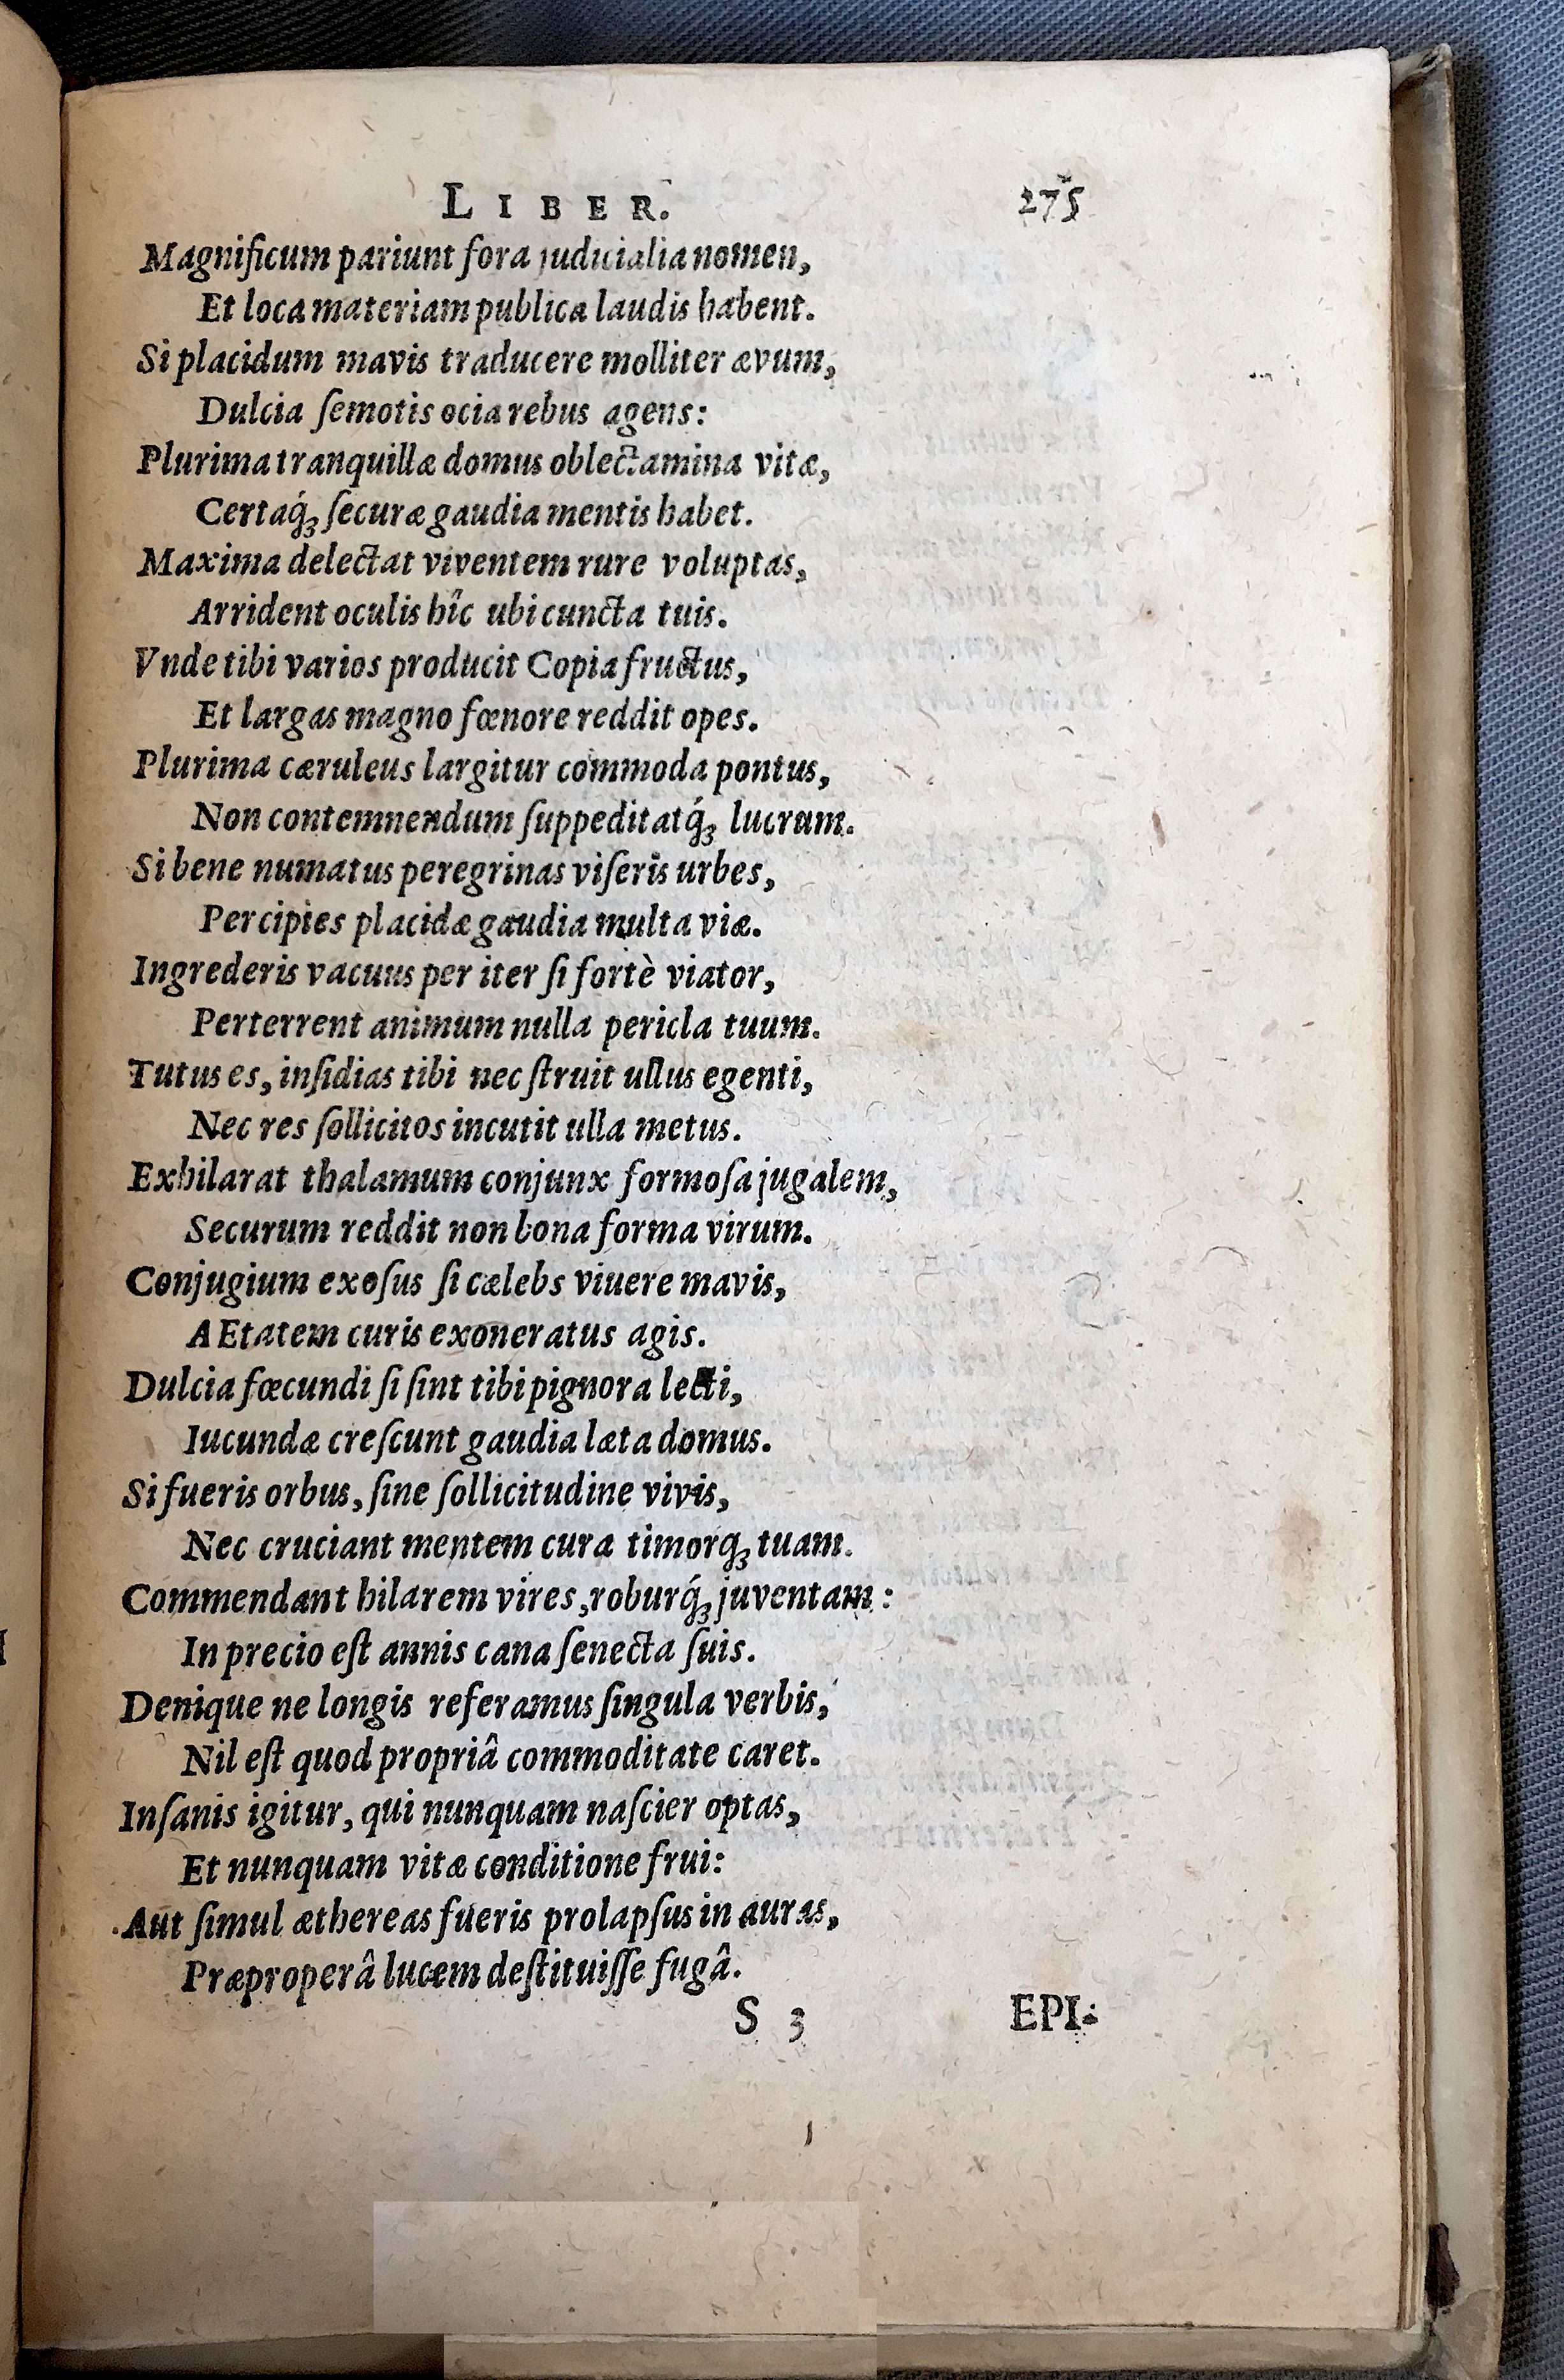 LIBER. 275
Magnificum pariunt fora judicialia nomen,
Et loca materiam publica laudis habent.
Si placidum mavis traducere molliter ævum,
Dulcia ſemotis ocia rebus agens:
Plurima tranquillæ domus oblectamina vitæ,
Certaq́ꝫ ſecuræ gaudia mentis habet.
Maxima delectat viventem rure voluptas,
Arrident oculis hîc ubi cuncta tuis.
Vnde tibi varios producit Copia fructus,
Et largas magno fœnore reddit opes.
Plurima cæruleus largitur commoda pontus,
Non contemnendum ſuppeditatq́ꝫ lucrum.
Si bene numatus peregrinas viſeris urbes,
Percipies placidæ gaudia multa viæ.
Ingrederis vacuus per iter ſi fortè viator,
Perterrent animum nulla pericla tuum.
Tutus es, inſidias tibi nec ſtruit ullus egenti,
Nec res ſollicitos incutit ulla metus.
Exhilarat thalamum conjunx formoſa jugalem,
Securum reddit non bona forma virum.
Conjugium exoſus ſi cælebs viuere mavis,
AEtatem curis exoneratus agis.
Dulcia fœcundi ſi ſint tibi pignora lecti,
Iucundæ creſcunt gaudia læta domus.
Si fueris orbus, ſine ſollicitudine vivis,
Nec cruciant mentem cura timorqꝫ tuam.
Commendant hilarem vires, roburq́ꝫ juventam:
In precio eſt annis cana ſenecta ſuis.
Denique ne longis referamus ſingula verbis,
Nil eſt quod propriâ commoditate caret.
Inſanis igitur, qui nunquam naſcier optas,
Et nunquam vitæ conditione frui:
Aut ſimul æthereas fueris prolapſus in auras,
Præproperâ lucem deſtituiſſe fugâ.
S 3 EPI-